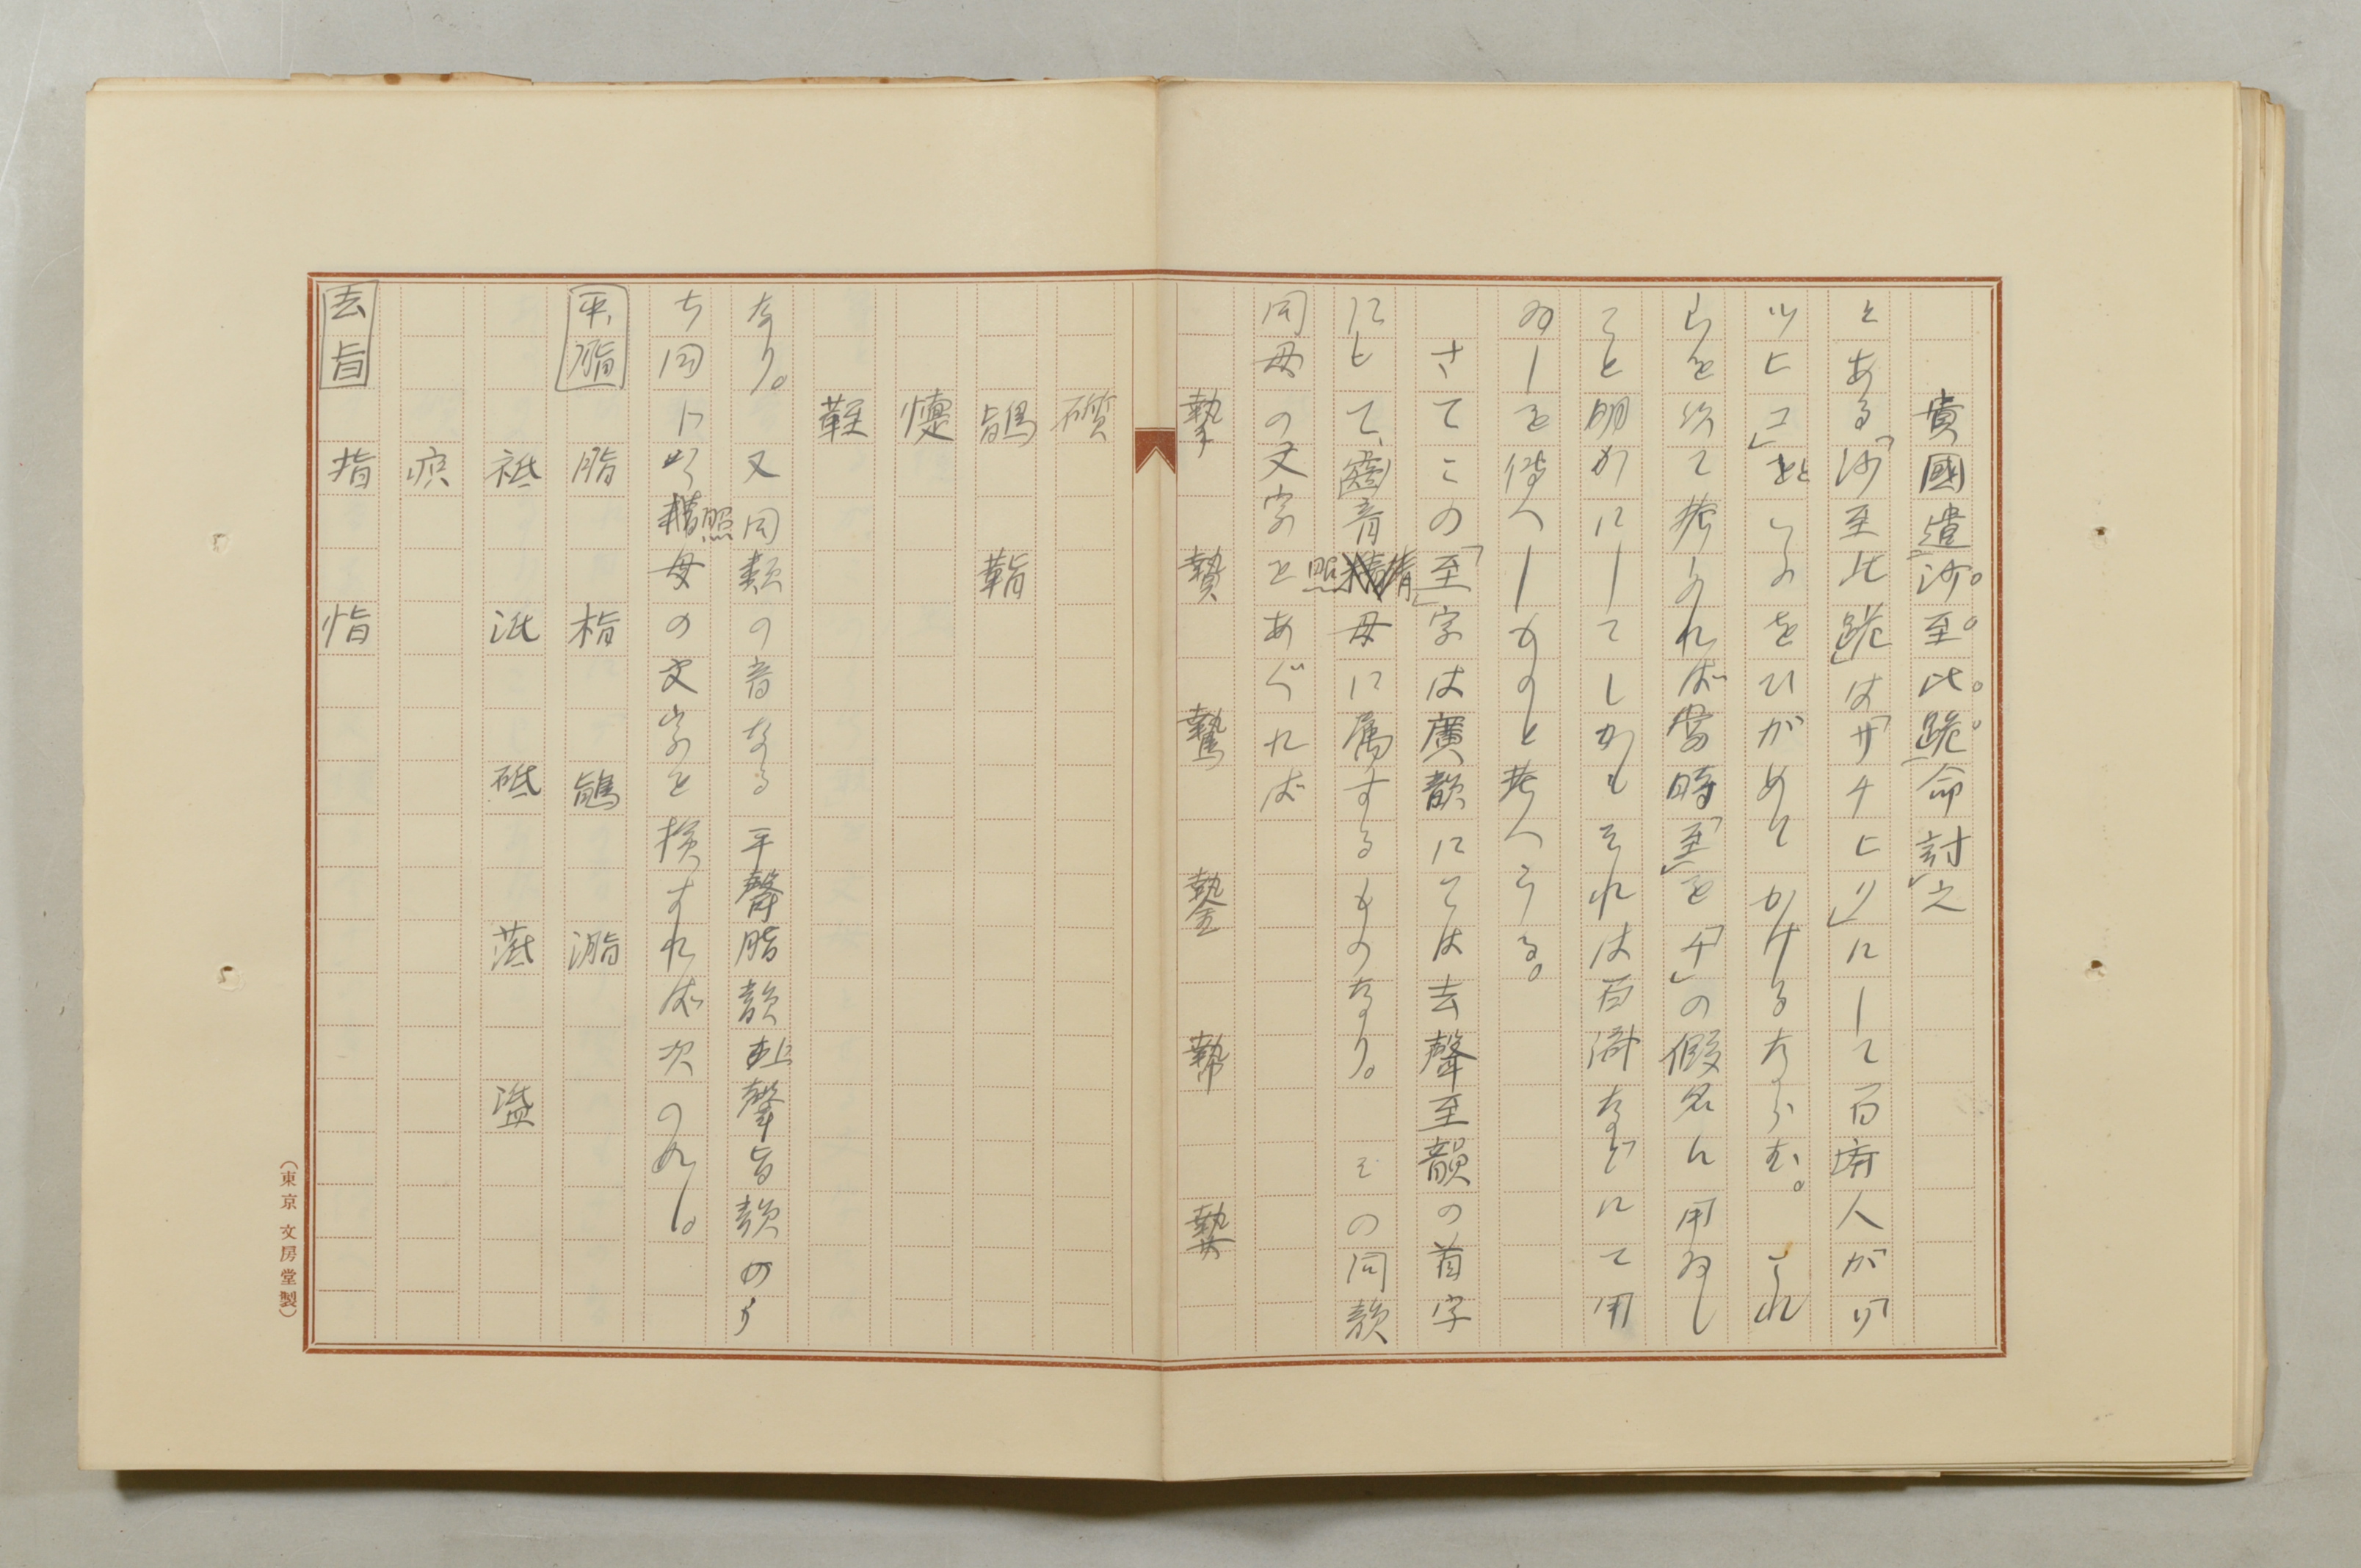 貴國遣「沙至比跪」命討之
とある「沙至比跪」は「サチヒリ」にして百済人が「ソ
ツヒコ」をひがめてかけるならむ。これ
らを以て考ふれば當時「至」を「チ」の假名に用ゐし
こと明かにしてしかもそれは百済などにて用
ゐしを傳へしものと考へうる。
さてこの「至」字は廣韻にては去聲至韻の首字
にして、齒音照母に属するものなり。その同韻
同母の文字をあぐれば
摯 贄 鷙 䥍 䡾 𡠗
礩
鴲 䩢
懥
䩺
なり。又同類の音なる平聲脂韻上聲旨韻のう
ち同じ照母の文字を檢すれば次の如し。
平脂 脂 栺 鴲 㴯
祗 泜 砥 蒤 䓋
疻
去旨 指 恉
（東京 文房堂製）